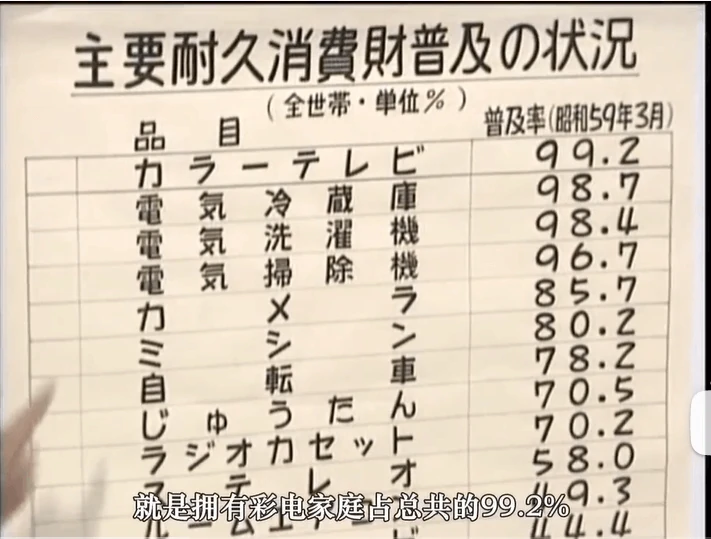 主要耐久消費財普及の状況
(全世帯・単位%)
品目 普及率(昭和59年3月)
カラーテレビ 99.2
電気冷蔵庫 98.7
電気洗濯機 98.4
電気掃除機 96.7
カメラ 85.7
ミシン 80.2
自転車 78.2
じゅうたん 70.5
ラジオカセット 70.2
ステレオ 58.0
49.3
44.4
就是拥有彩电家庭占总共的99.2%